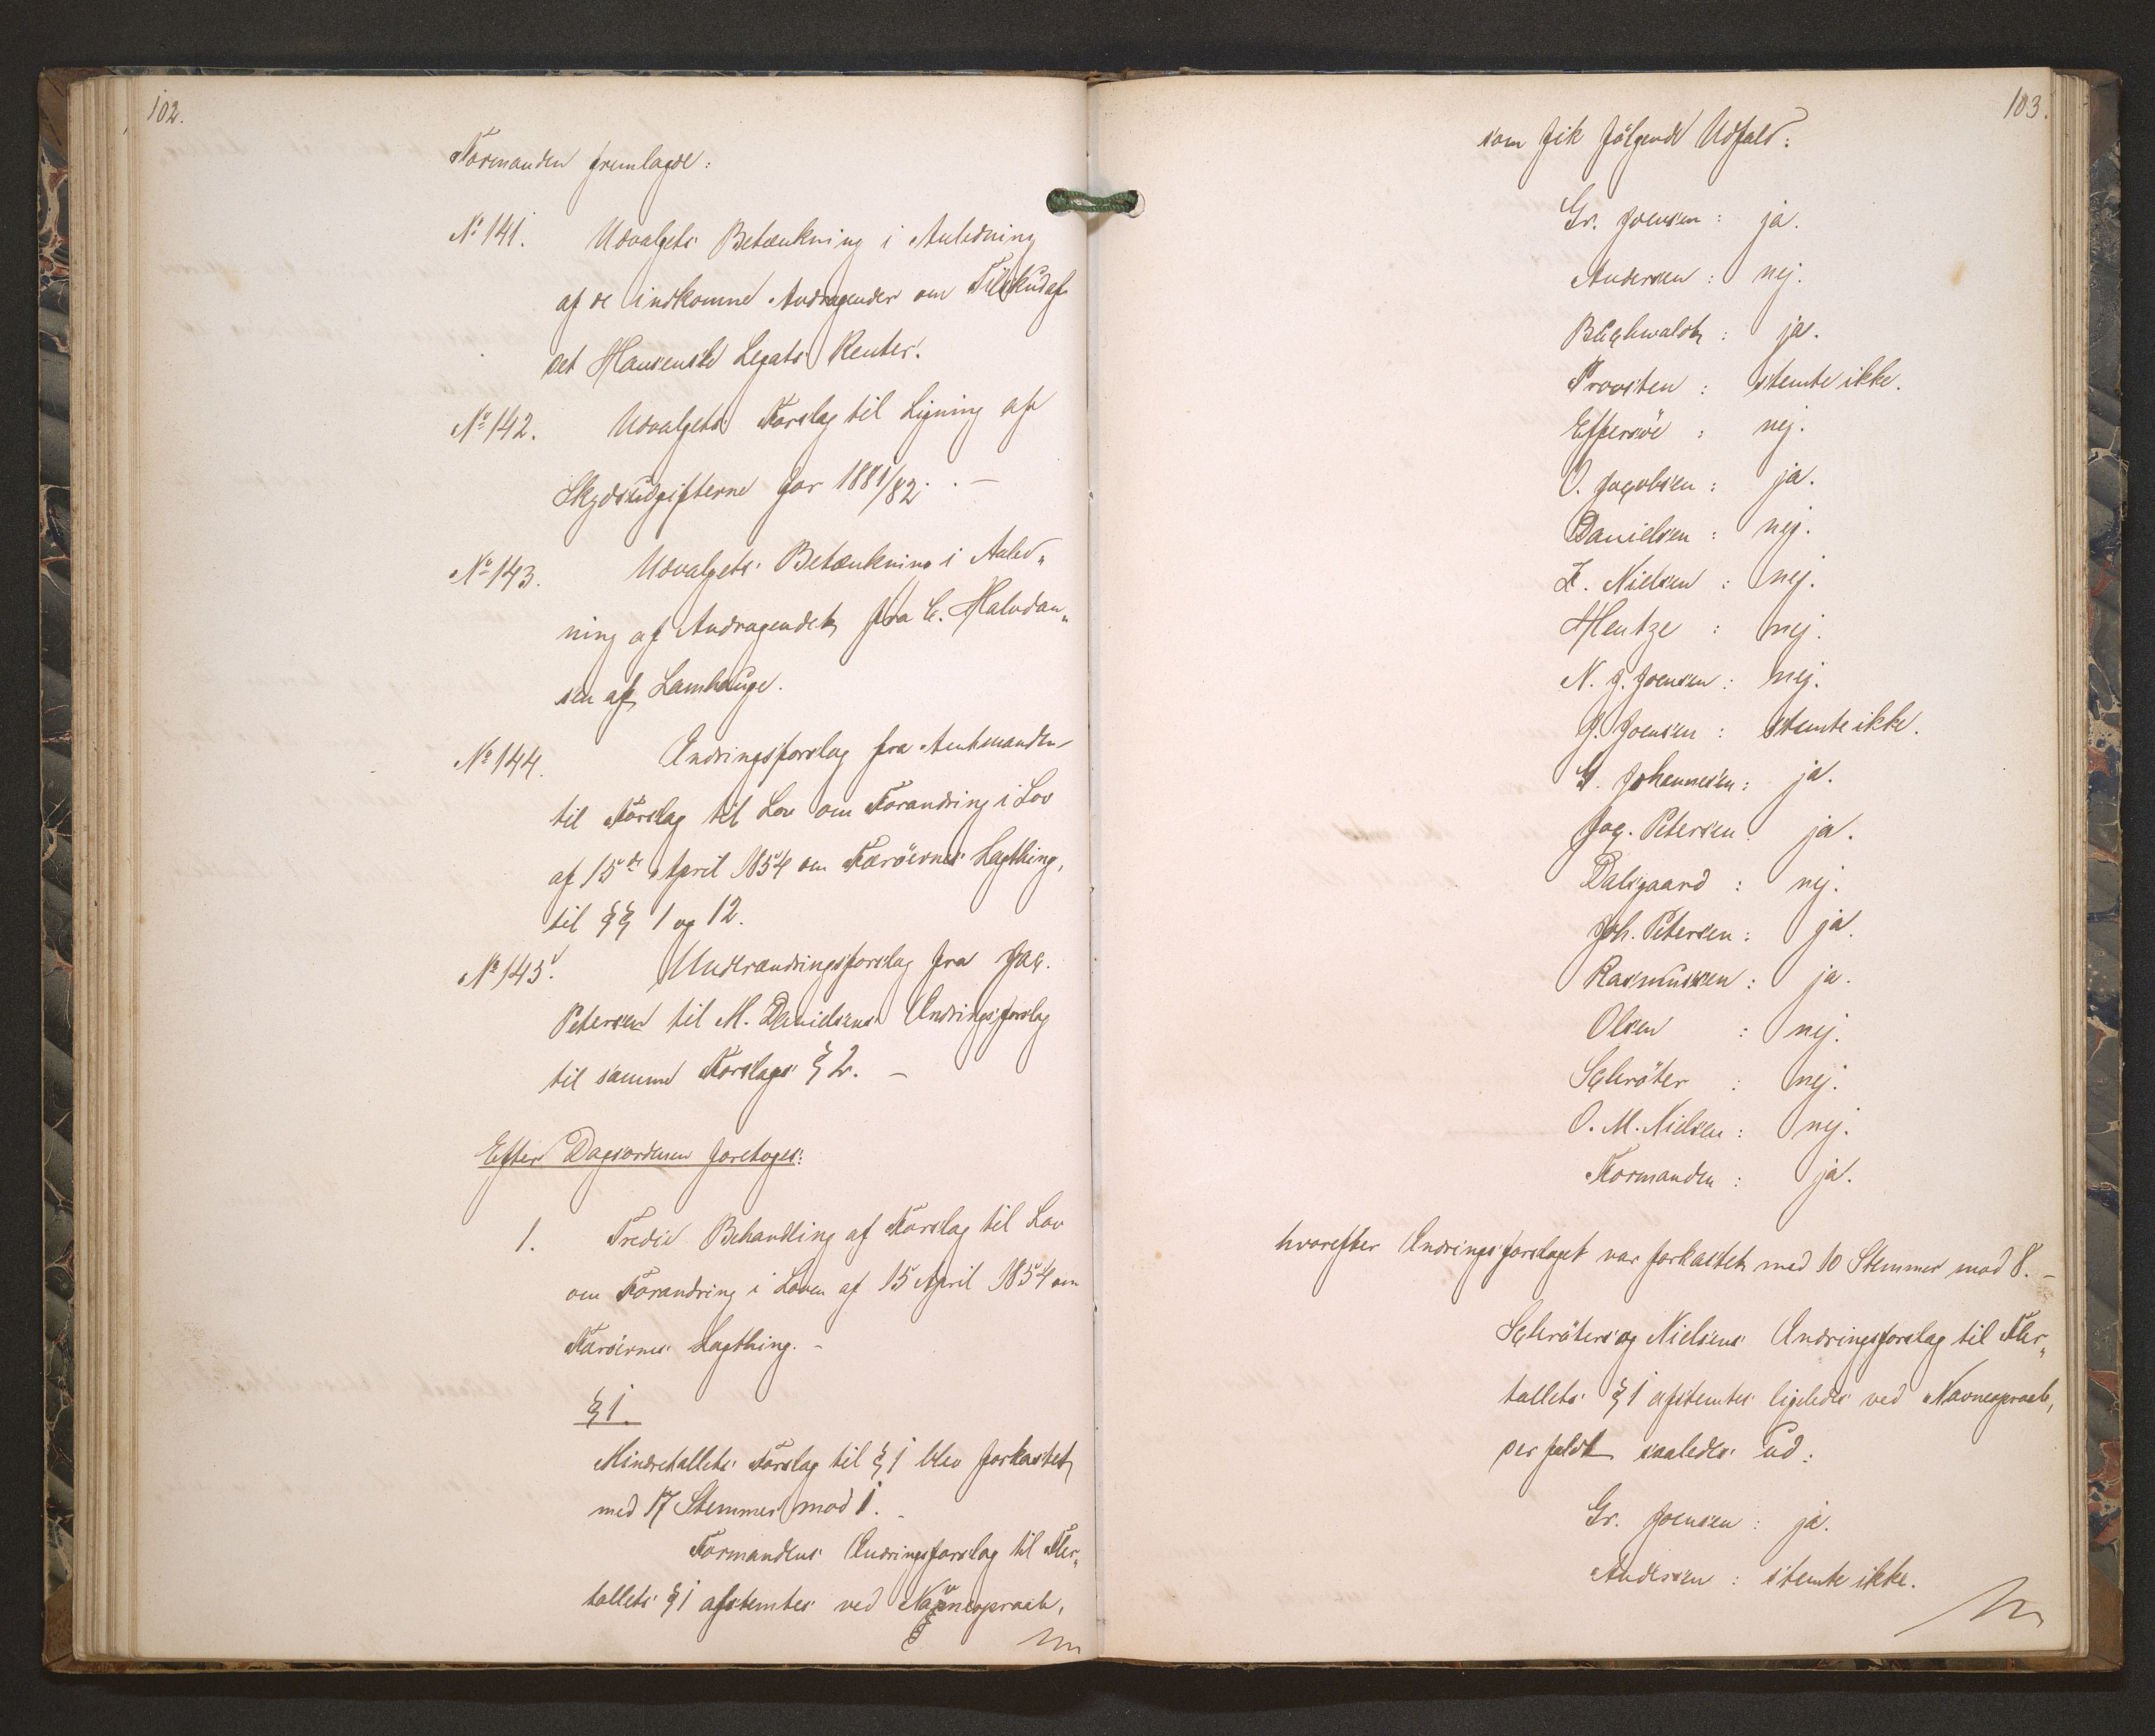 102.
Formanden fremlagde:
No 141. Udvalgets Betænkning i Anledning
af de indkomne Andragender om Tilskud af
det Hansenske Legats Renter.
No 142. Udvalgets Forslag til Ligning af
Skydsudgifterne for 1881/82. . —
No 143. Udvalgets Betænkning i Anled„
ning af Andragendet fra C. Halvdan„
sen af Lamhauge.
No 144. Ændringsforslag fra Amtmanden
til Forslag til Lov om Forandring i Lov
af 15de April 1854 om Færöernes Lagthing,
til §§ 1 og 12.
No 145. Underændringsforslag fra Jac.
Petersen til M. Danielsens Ændringsforslag
til samme Forslags § 2. —
Efter Dagsordenen foretoges:
1. Tredie Behandling af Forslag til Lov
om Forandring i Loven af 15 April 1854 om
Færöernes Lagthing. –
§ 1.
Mindretallets Forslag til § 1 blev forkastet
med 17 Stemmer mod 1. –
Formandens Ændringsforslag til Fler„
tallets § 1 afstemtes ved Navneopraab,
103.
som fik fölgende Udfald:
Gr. Joensen: ja.
Andersen: nej.
Buchwaldt: ja.
Provsten: stemte ikke.
Effersöe: nej.
O. Jacobsen: ja.
Danielsen: nej.
Z. Nielsen: nej.
Hentze: nej.
N. J. Joensen: nej.
J. Joensen: stemte ikke.
G. Johannesen: ja.
Jac. Petersen ja.
Dalsgaard: nej.
Joh. Petersen: ja.
Rasmussen: ja.
Olsen: nej.
Schröter: nej.
O. M. Nielsen: nej.
Formanden: ja.
hvorefter Ændringsforslaget var forkastet med 10 Stemmer mod 8. –
Schröters og Nielsens Ændringsforslag til Fler„
tallets § 1 afstemtes ligeledes ved Navneopraab,
der faldt saaledes ud:
Gr. Joensen: ja.
Andersen: stemte ikke.